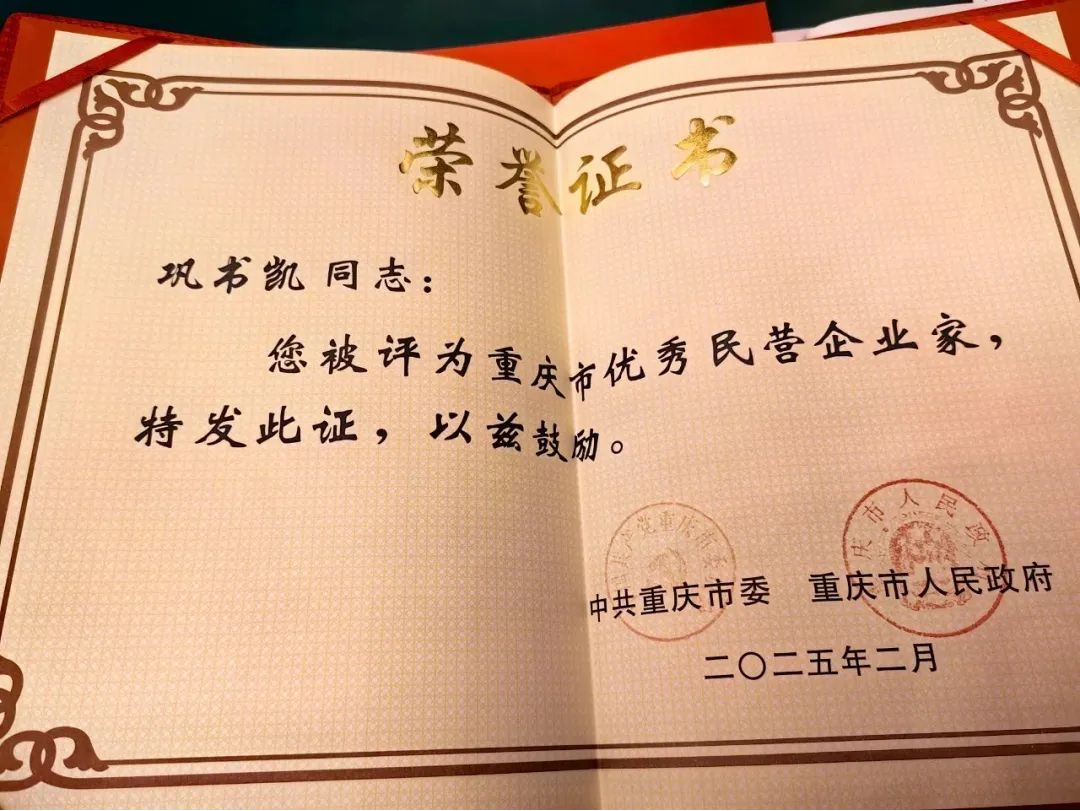 荣誉证书
巩书凯同志：
您被评为重庆市优秀民营企业家，
特发此证，以兹鼓励。
中共重庆市委 重庆市人民政府
二〇二五年二月
庆市人民政
产党重庆市委